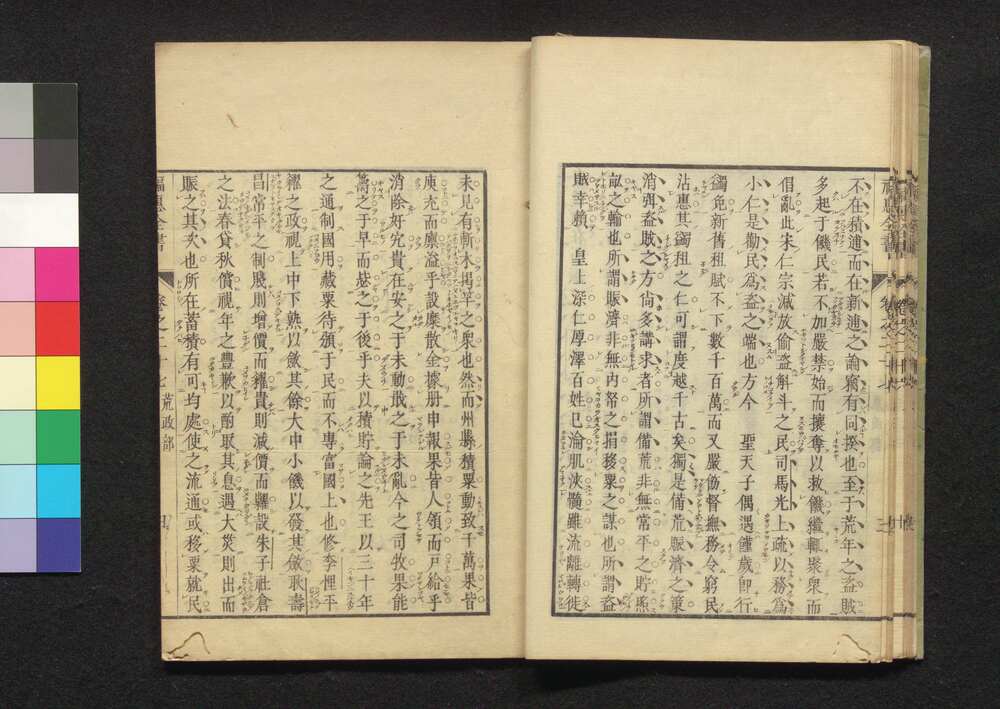 不在積逋而在新逋之論竊有同揆也至于荒年之盗賊
多起于饑民若不加嚴禁始而攘奪以救饑繼輒聚衆而
倡亂此宋仁宗減放偷盗斛斗之民司馬光上疏以務為
小仁是勸民為盗之端也方今 聖天子偶遇饉歲卽行
蠲免新舊租賦不下數千百萬而又嚴飭督撫務令窮民
沾惠其蠲租之仁可謂度越千古矣獨是備荒賑濟之策
消弭盗賊之方尚多講求者所謂備荒非無常平之貯
之輸也所謂賑濟非無内帑之捐移粟之謀也所謂盗
賊幸賴 皇上深仁厚澤百姓巳淪肌浹髓雖流離轉徙
未見有斬木掲竿之衆也然而州縣積粟動致千萬果皆
庾充而廪溢乎設糜散金據册申報果皆人領而戸給乎
消除奸宄貴在安之于未動戢之于未亂今之司牧果能
籌之于早而毖之于後乎夫以積貯論之先王以三十年
之通制國用藏粟待頒于民而不專富國上也修李悝平
糴之政視上中下熟以斂其餘大中小饑以發其斂耿壽
昌常平之制賤則增價而糴貴則減價而糶設朱子社倉
之法春貸秋償視年之豐歉以酌取其息遇大災則出而
賑之其次也所在蓄積有可均處使之流通或移粟就民
福惠全書
卷之二十七
荒政部
四